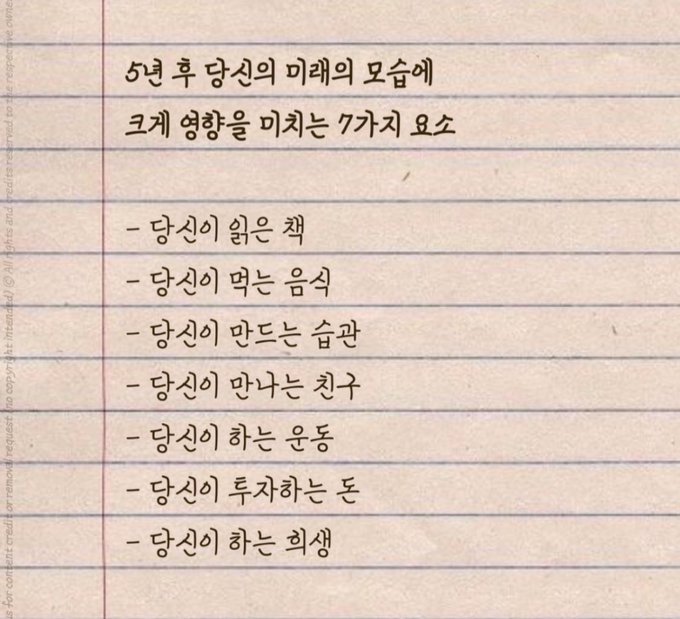 5년 후 당신의 미래의 모습에
크게 영향을 미치는 7가지 요소
- 당신이 읽은 책
- 당신이 먹는 음식
- 당신이 만드는 습관
- 당신이 만나는 친구
- 당신이 하는 운동
- 당신이 투자하는 돈
- 당신이 하는 희생
s for content credit or removal request (no copyright intended) © All rights and credits reserved to the respective owne